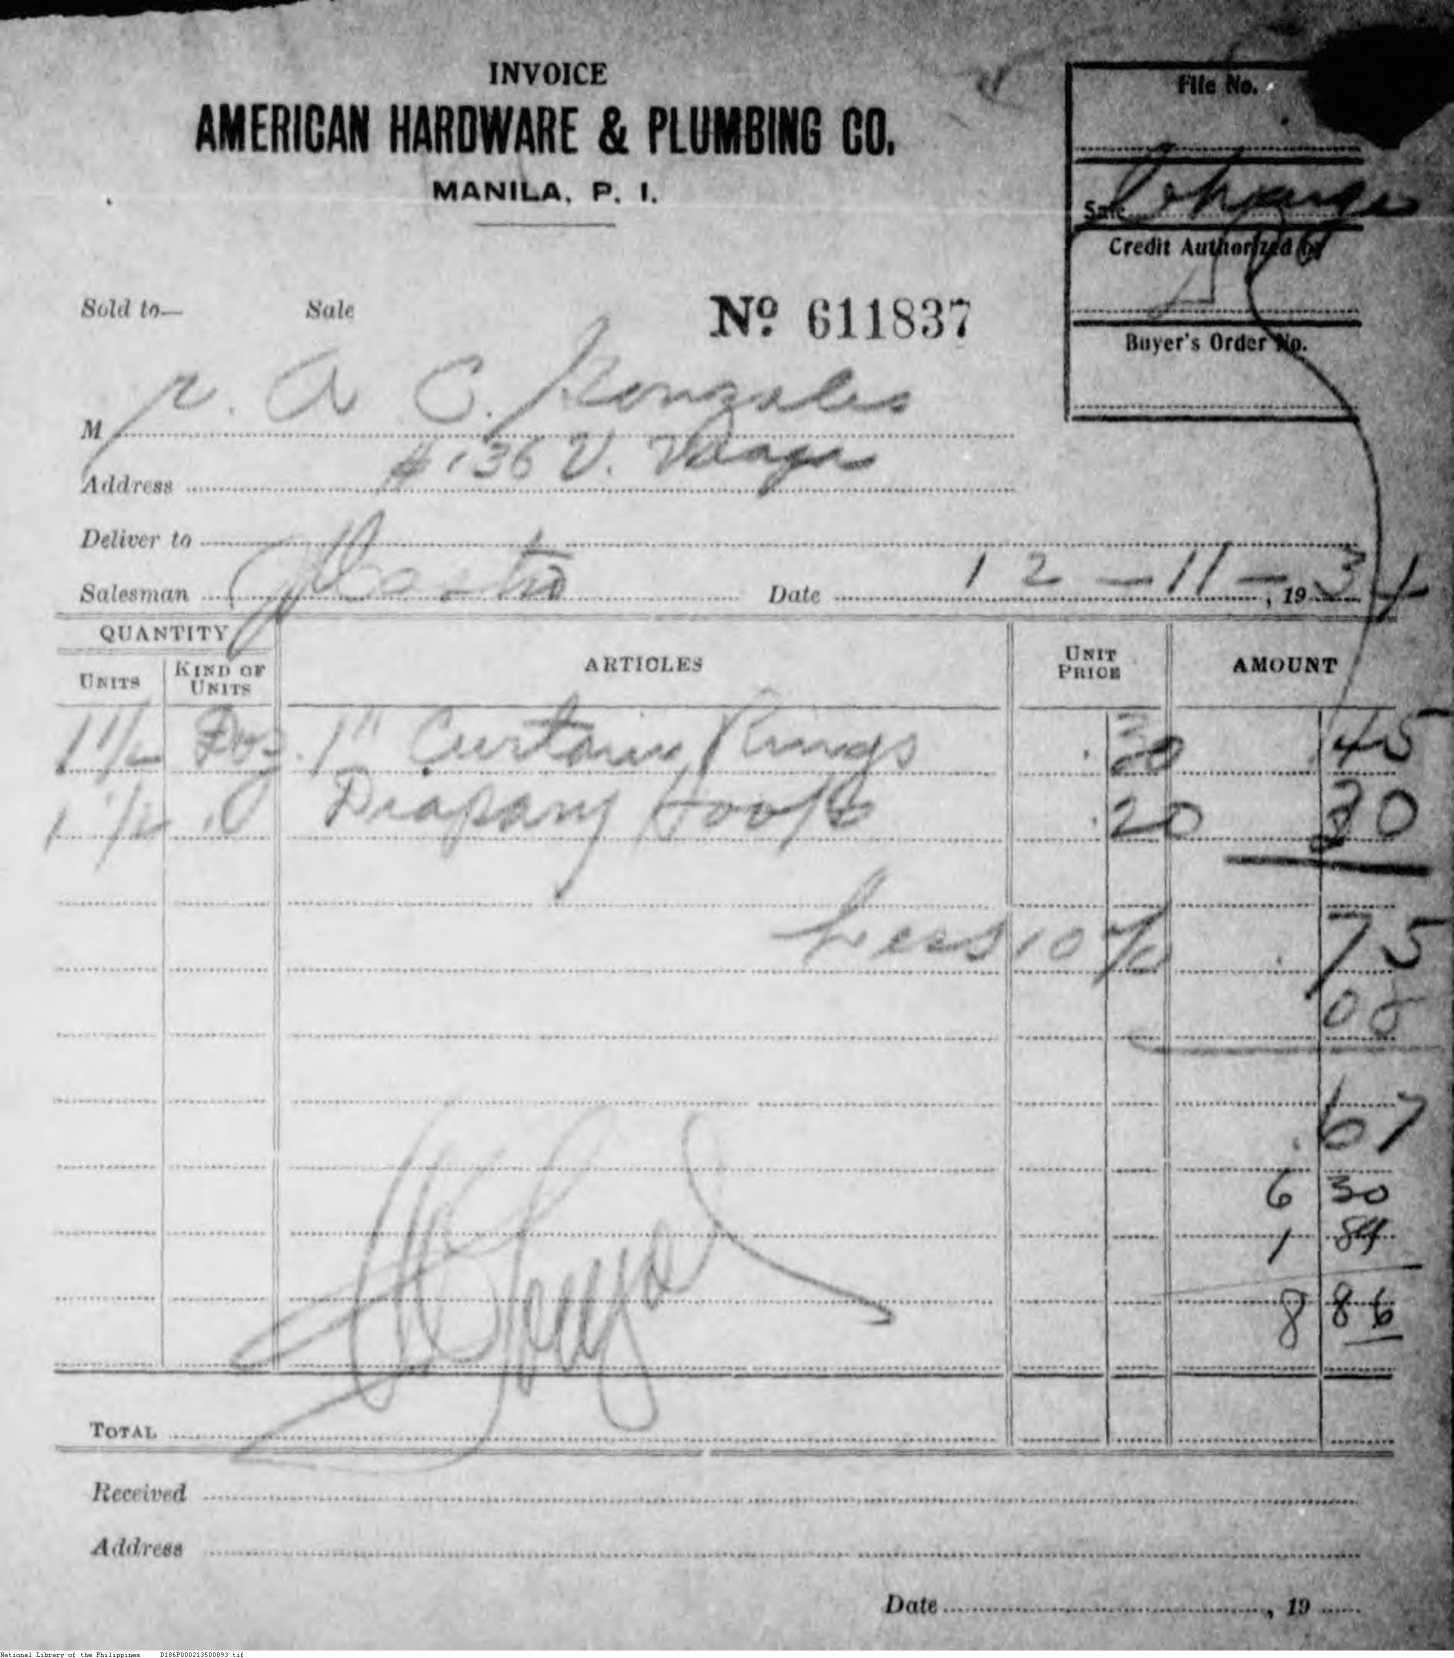 INVOICE
AMERICAN HARDWARE & PLUMBING CO.
MANILA, P. I.
File No.
Sale Charge
Credit Authorized by
Buyer's Order No.
Sold to— Sale
Nº 611837
Mr. A C. Gonzales
Address #136 V.
Deliver to
Salesman Date 12-11-, 1934
QUANTITY
UNITS KIND OF UNITS ARTICLES UNIT PRICE AMOUNT
1 1/2 Doz. 1" Curtain Rings .30 .45
1 1/2 " Drapary Hooks .20 30
Less 10% .75
08
.67
6 30
1 89
8 86
TOTAL
Received
Address
Date , 19
National Library of the Philippines D186P000213500893.tif